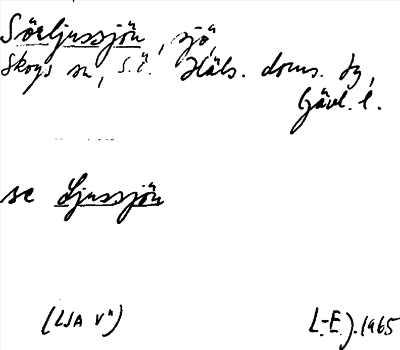 Sörljussjön, sjö,
Skogs sn, S.Ö. Häls. doms. dg,
Gävl. l.
se Ljussjön
(LSA V")
L.-E.J.1965